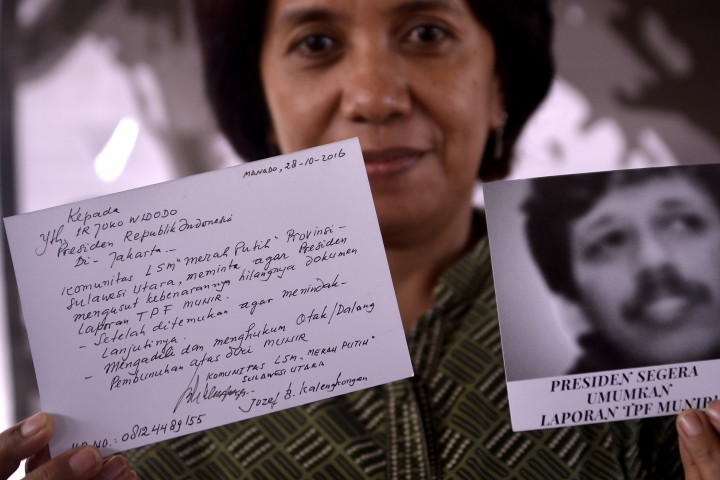 MANADO, 28-10-2016
Kepada
Yth, IR JOKO WIDODO
Presiden Republik Indonesia
Di- Jakarta.-
Komunitas LSM "Merah Putih" Provinsi-
Sulawesi Utara, meminta agar Presiden
mengusut kebenarannya hilangnya dokumen
Laporan TPF MUNIR.
- Setelah ditemukan agar menindak-
Lanjutinya.
- Mengadili dan menghukum Otak/Dalang
Pembunuhan atas diri MUNIR
KOMUNITAS LSM "MERAH PUTIH"
SULAWESI UTARA
Jozef B. Kalengkongan
NO: 08124489155
PRESIDEN SEGERA
UMUMKAN
LAPORAN TPF MUNIR